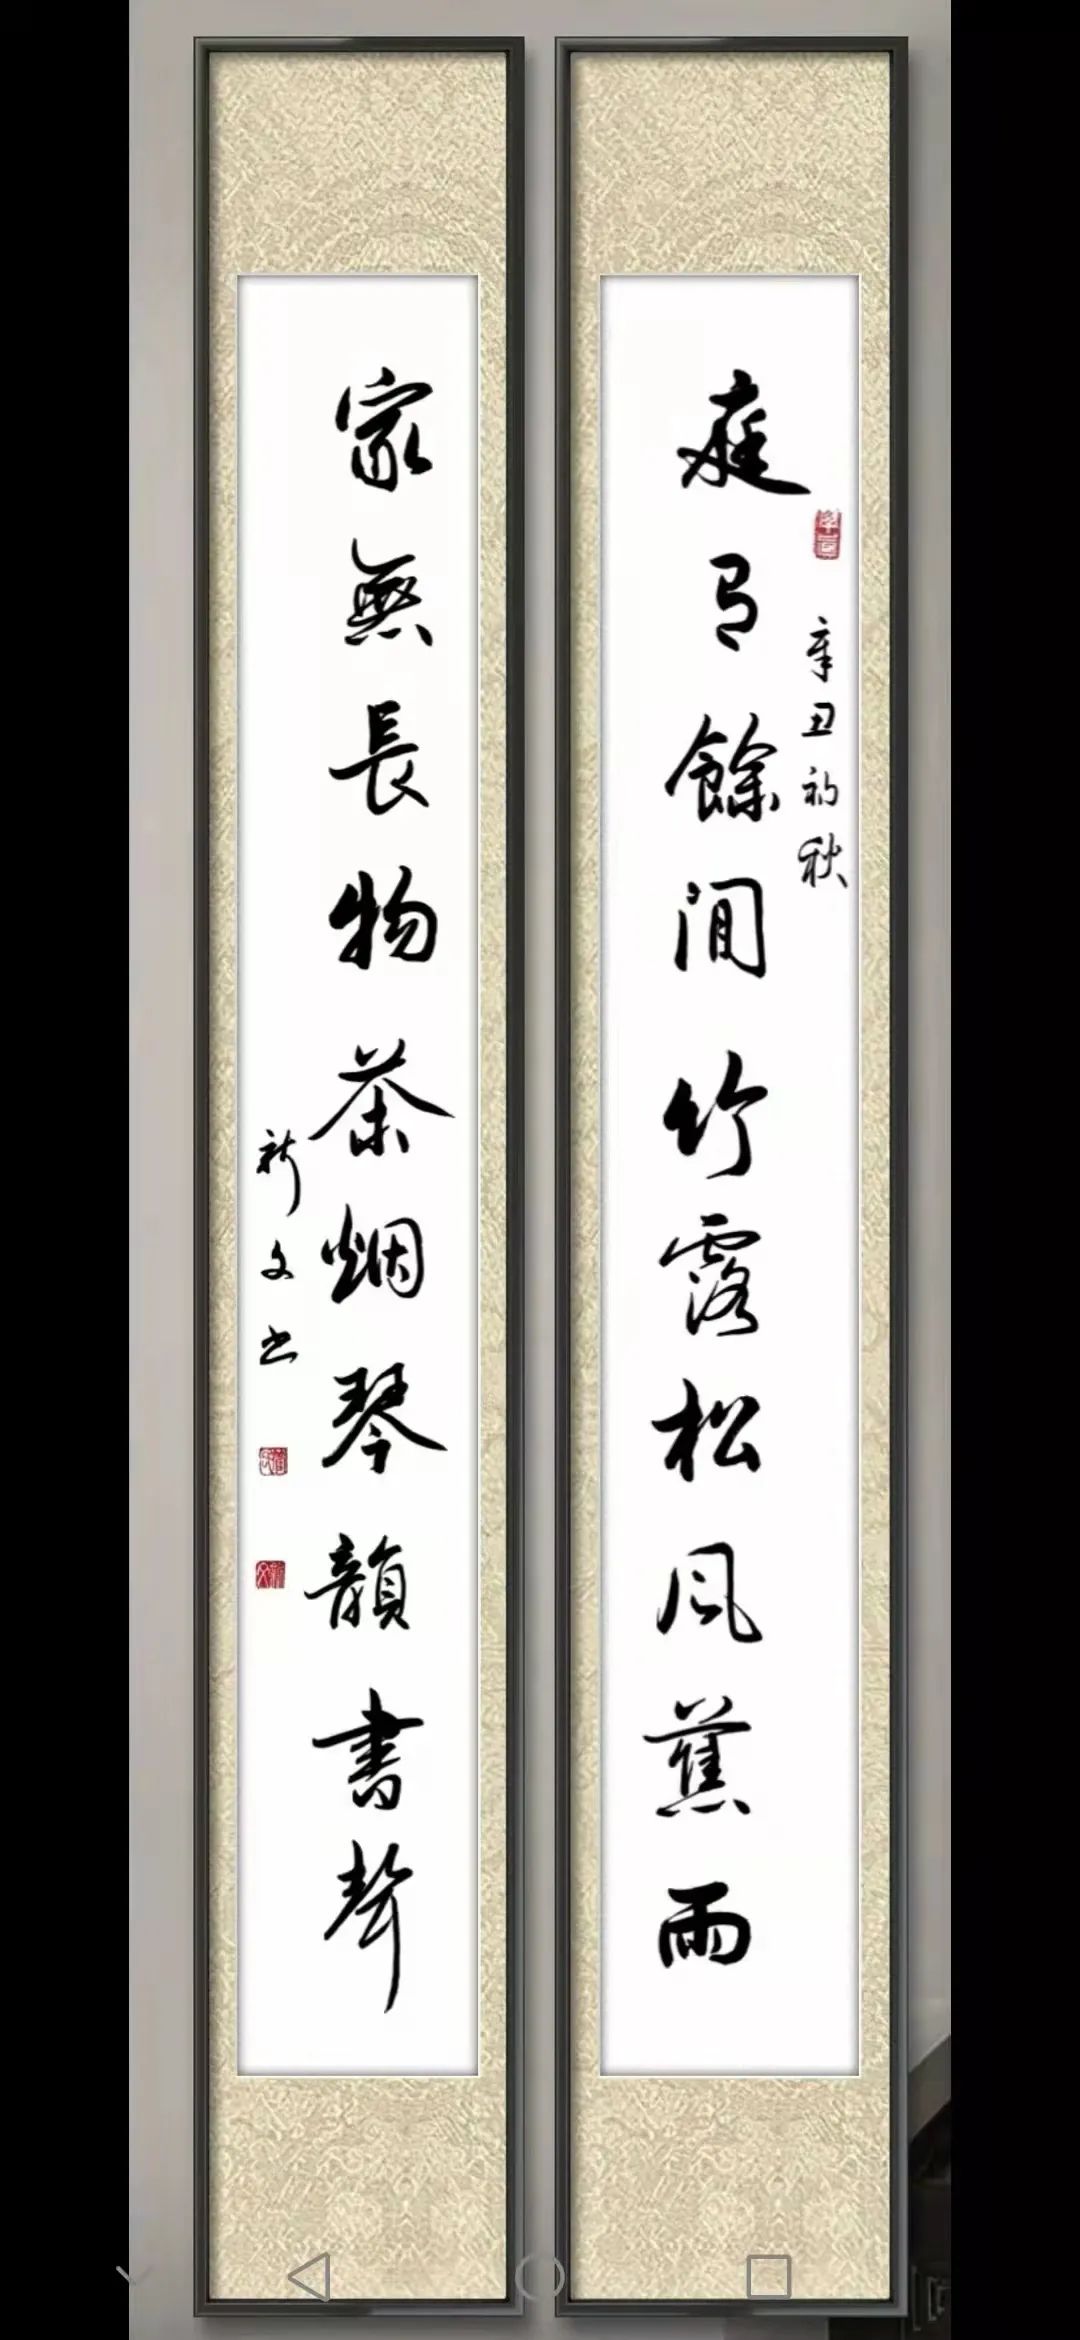 庭有餘閒竹露松風蕉雨
辛丑初秋
家無長物茶烟琴韻書聲
新文书